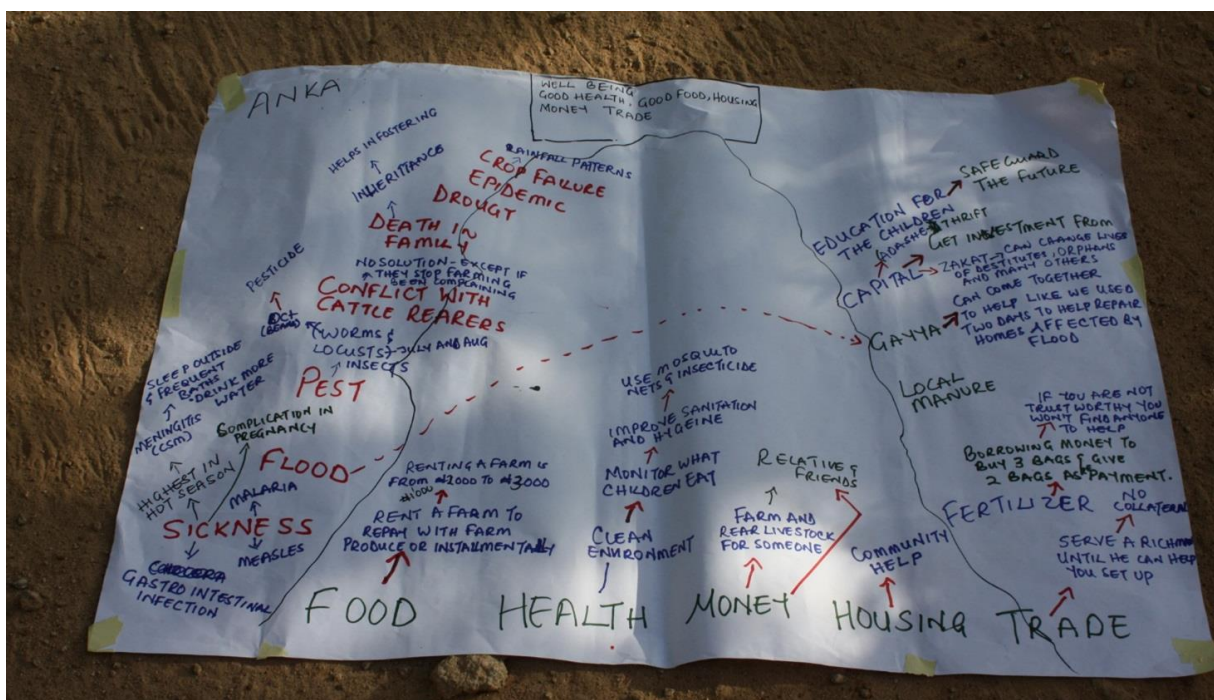 ANKA
WELL BEING
GOOD HEALTH, GOOD FOOD, HOUSING
MONEY TRADE
HELPS IN FOSTERING
INHERITANCE
RAINFALL PATTERNS
CROP FAILURE
EPIDEMIC
DROUGT
DEATH IN
FAMILY
NO SOLUTION - EXCEPT IF
THEY STOP FARMING
BEEN COMPLAINING
CONFLICT WITH
CATTLE REARERS
PESTICIDE
OCT
(BEANS)
WORMS &
LOCUSTS - JULY AND AUG
INSECTS
PEST
SLEEP OUTSIDE
& FREQUENT
BATHS
DRINK MORE
WATER
MENINGITIS
(CSM)
COMPLICATION IN
PREGNANCY
HIGHEST IN
HOT SEASON
FLOOD
MALARIA
SICKNESS
MEASLES
GASTRO INTESTINAL
INFECTION
RENTING A FARM IS
FROM ₦2000 TO ₦3000
₦1000
RENT A FARM TO
REPAY WITH FARM
PRODUCE OR INSTALMENTALLY
FOOD
USE MOSQUITO
NETS & INSECTICIDE
IMPROVE SANITATION
AND HYGEINE
MONITOR WHAT
CHILDREN EAT
CLEAN
ENVIRONMENT
HEALTH
RELATIVE &
FRIENDS
FARM AND
REAR LIVESTOCK
FOR SOMEONE
MONEY
COMMUNITY
HELP
HOUSING
SAFEGUARD
THE FUTURE
EDUCATION FOR
THE CHILDREN
ADASHE THRIFT
GET INVESTMENT FROM
CAPITAL
ZAKAT - CAN CHANGE LIVES
OF DESTITUTES, ORPHANS
AND MANY OTHERS
GAYYA
CAN COME TOGETHER
TO HELP LIKE WE USED
TWO DAYS TO HELP REPAIR
HOMES AFFECTED BY
FLOOD
LOCAL
MANURE
IF YOU ARE NOT
TRUST WORTHY YOU
WON'T FIND ANYONE
TO HELP
BORROWING MONEY TO
BUY 3 BAGS & GIVE
2 BAGS AS PAYMENT.
FERTILIZER
NO
COLLATERAL
SERVE A RICHMAN
UNTIL HE CAN HELP
YOU SET UP
TRADE